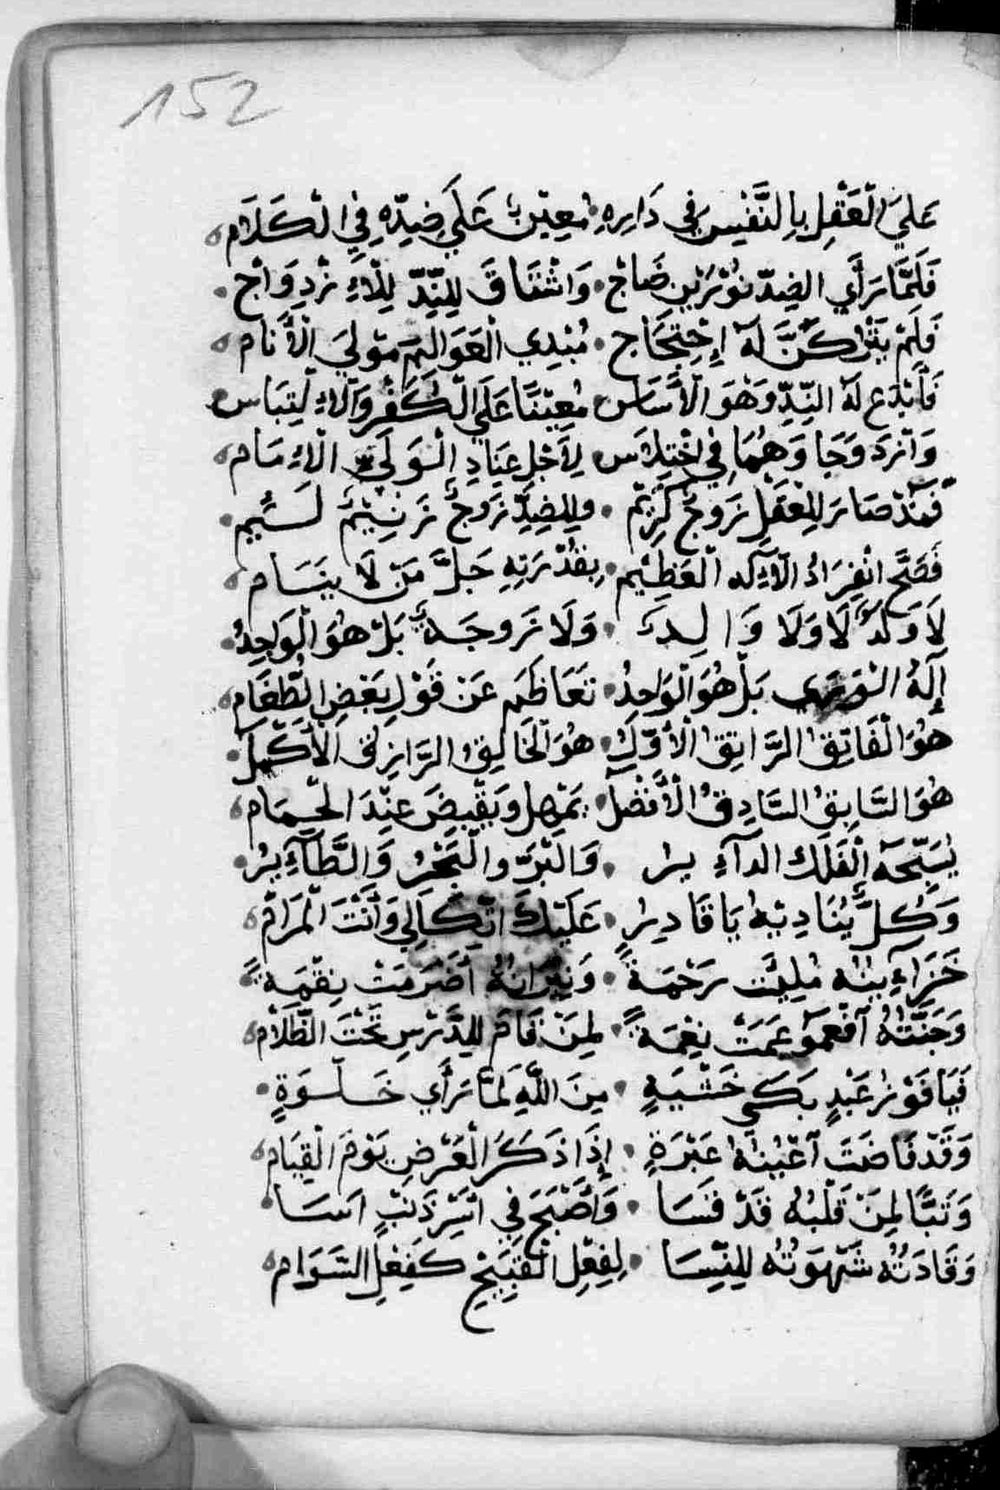 152
عَلَي الْعَقْلِ بِالنَّفْسِ فِي دَارِهِ مُعِيْنٍ عَلَي ضِدِّهِ فِي الْكَلَام
فَلَمَّا رَأَي الضِدّ نُوْرَيْنِ ضَاجْ وَاشْتَاقَ لِلنِّدِّ لِلْاِزْدِوَاج
فَلَمْ يَتْرُكَنَّ لَهُ إِحْتِجَاج مُبْدِي الْعَوَالِمَ مَوْلَي الْأَنَام
فَأَبْدَع لَهُ النِّدِّ وَهْوَ الْأَسَاس مُعِيْنًا عَلَي الْكُفْرِ وَالْاِلْتِبَاس
وَازْدَوَجَا وَهُمَا فِي اخْتِلَاس لِأَجْلِ عِبَادِ الْوَلَي الْاِمَام
فَمُذْ صَارَ لِلْعَقْلِ زَوجٌ كَرِيْم وِللضِدِّ زَوجٌ زَنِيْمٌ لَئِيم
فَصَحَّ انْفِرَادُ الْاِلَهِ الْعَظِيْم بِقُدْرَتِهِ جَلَّ مَنْ لَا يَنَام
لَا وَلَدٌ لَا وَلَا وَالِدُ وَلَا زَوجَةٌ بَلْ هُوَ الْوَاحِدُ
إِلَهُ الْوَرَى بَلْ هُوَ الْوَاحِدُ تَعَاظَم عَنْ قَوْلِ بَعْضِ الطَّغَام
هُوَ الْفَاتِقُ الرَّاتِقُ الْأَوَّلُ هُوَ الْخَالِقُ الرَّازِقُ الْأَكْمَلُ
هُوَ السَّابِقُ السَّادِقُ الْأَفْضَلُ يَمْهِل وَيَقْبِضَ عِنْدَ الْحِمَام
يُسَبِّحُهُ الْفَلَكُ الدَآيِرُ وَالْبَرّ والْبَحْرُ وَالطَّآيِرُ
وَكُلٌّ يُنَادِيْهِ يَا قَادِرُ عَلَيْكَ اتِّكَالِي وَأَنْتَ الْمَرَام
خَزَآيِنُهُ مُلِيَتْ رَحْمَةً وَنِيْرَانُهُ أَضْرَمَتْ نِقْمَةً
وَجَنَّتُهُ أَفْعَمَوْ عَمَتْ نِعْمَةً لِمَنْ قَامَ لِلدَّرْسِ تَحْتَ الظَّلَام
فَيَا فَوْزَ عَبْدٍ بَكَى خَشْيَةٍ مِنَ اللَّهِ لَمَّا رَأَي خَلْوَةٍ
وَقَدْ فَاضَتَ أَعْيُنَهُ عَبْرَةٍ إِذَا ذَكَرَ الْعَرْضِ يَوْمَ الْقِيَام
وَتَبًّا لِمَنْ قَلْبُهُ قَدْ قَسَا وَأَصْبَحَ فِي أَسْرِ ذَنْبٍ أَسَا
وَقَادَتْهُ شَهْوَتُهُ لِلنِّسَا لِفِعْلِ الْقَبِيْحِ كَفِعْلِ السَّوَام